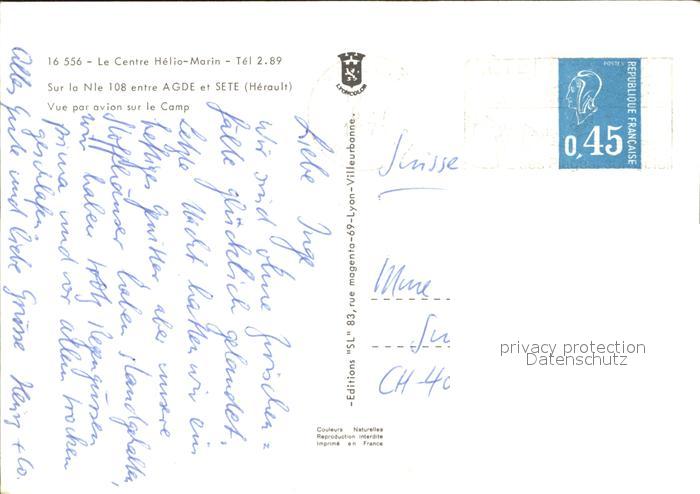 16 556 - Le Centre Hélio-Marin - Tél 2.89
Sur la Nle 108 entre AGDE et SETE (Hérault)
Vue par avion sur le Camp
LYONCOLOR
POSTES
REPUBLIQUE FRANÇAISE
0,45
Liebe Inge
Wir sind ohne Zwischen=
fälle glücklich gelandet.
Letzte Nacht hatten wir ein
heftiges Gewitter aber unsere
Stoffhäuser haben standgehalten,
wir haben trotz Regengüssen
prima und vor allem trocken
geschlafen.
Alles Gute und liebe Grüsse Heinz + Co.
-Editions "SL" 83, rue magenta-69-Lyon-Villeurbanne.
Suisse
Mme
CH-40
privacy protection
Datenschutz
Couleurs Naturelles
Reproduction interdite
Imprimé en France